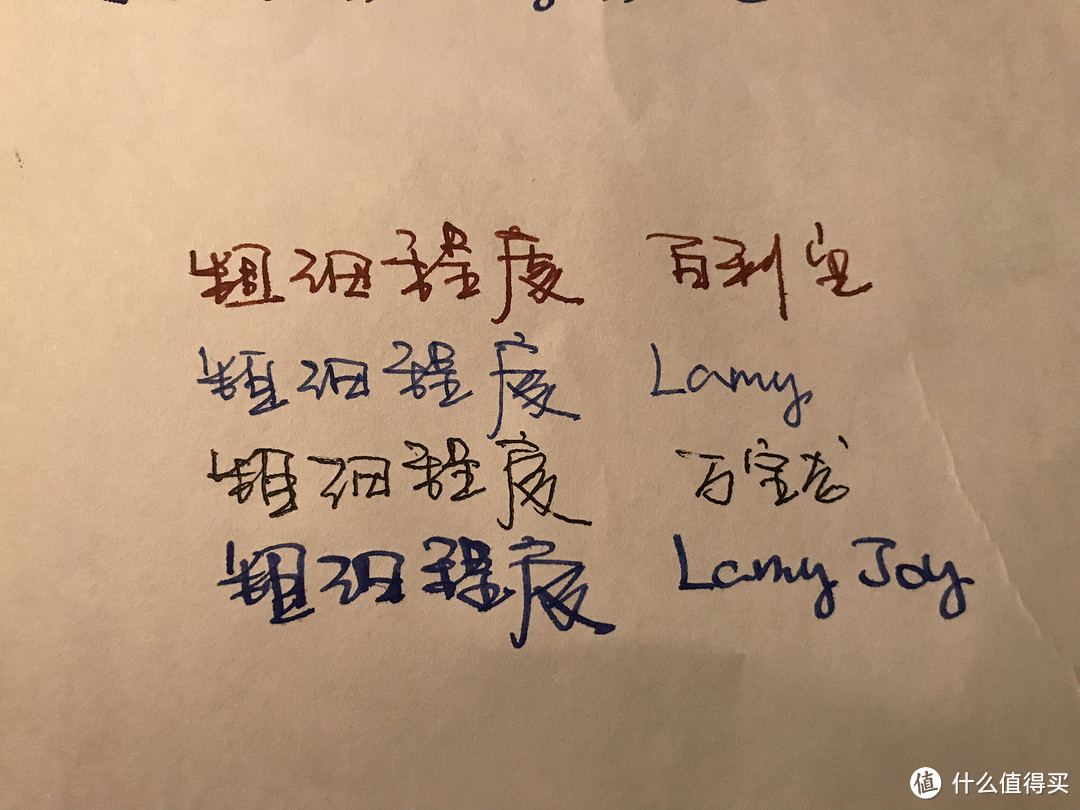 粗细程度 百利金
粗细程度 Lamy
粗细程度 万宝龙
粗细程度 Lamy Joy
值 什么值得买